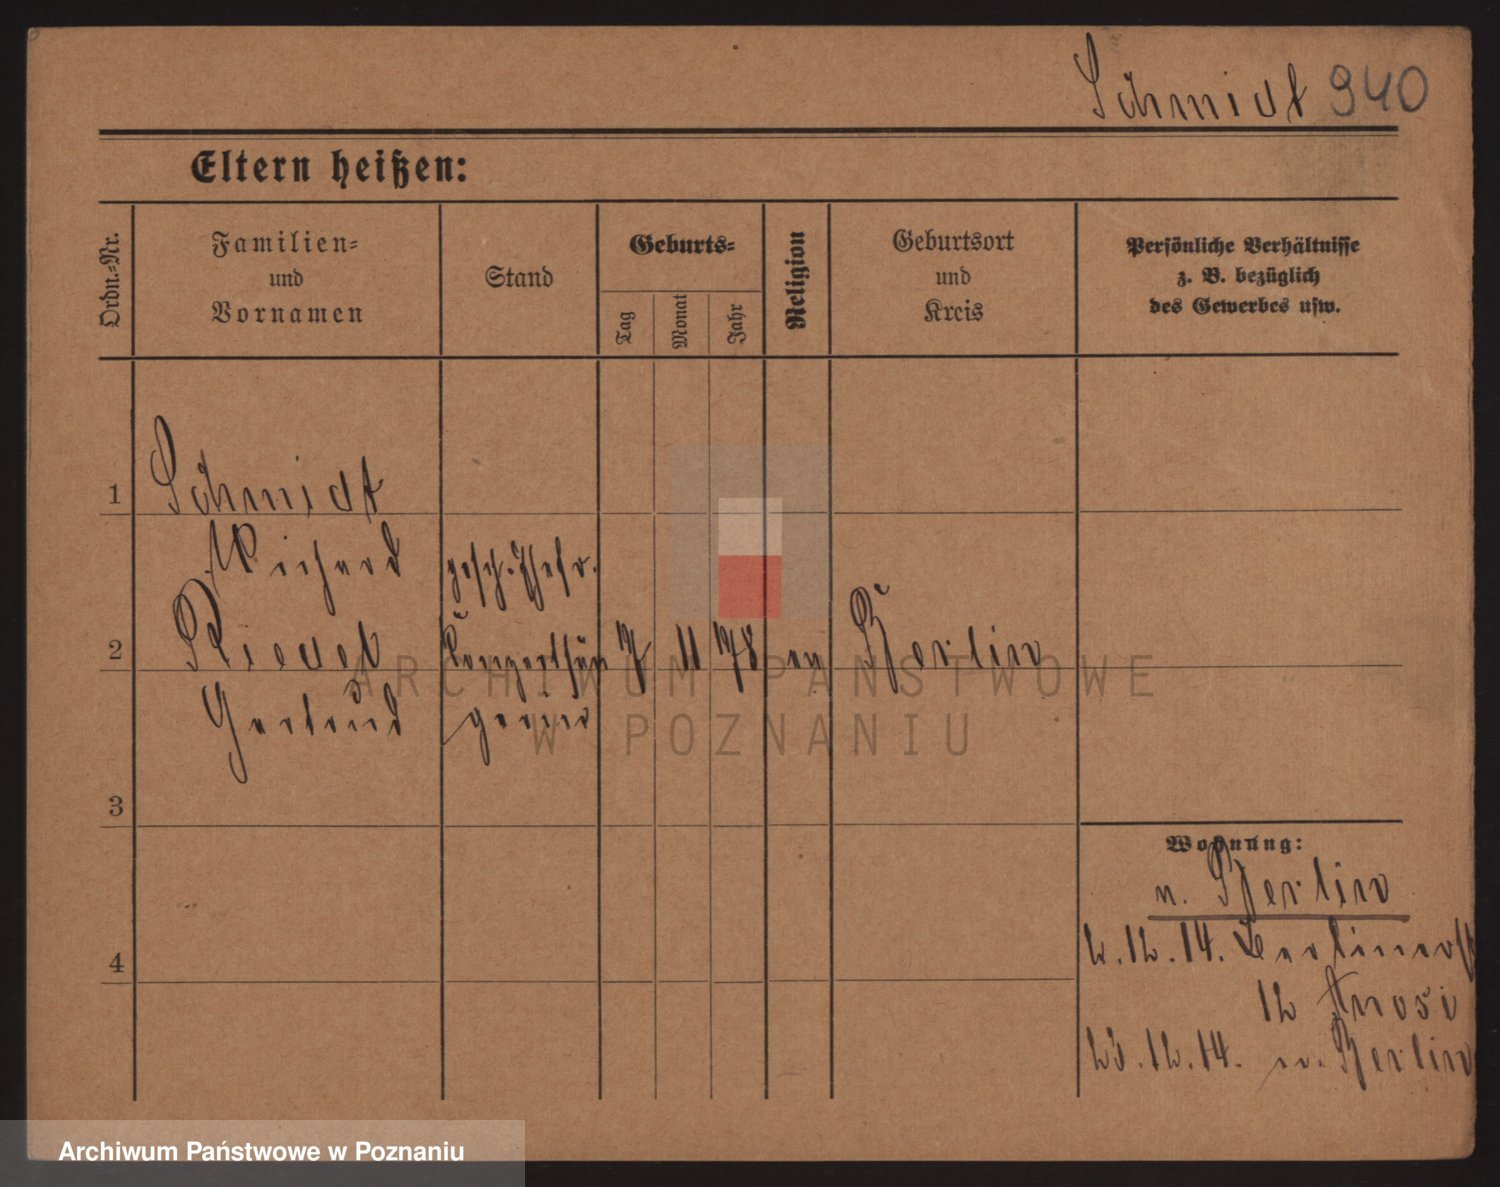 Schmidt 940
Eltern heißen:
Ordn.-Nr.
Familien-
und
Vornamen
Stand
Geburts-
Tag
Monat
Jahr
Religion
Geburtsort
und
Kreis
Persönliche Verhältnisse
z. B. bezüglich
des Gewerbes usw.
1
Schmidt
Richard
gesch. Ehefr.
2
Riedel
7 11 78 ev Berlin
Gertrud
3
4
Wohnung:
n. Berlin
2.12.14. Berlinerst
12
23.12.14. n. Berlin
ARCHIWUM PAŃSTWOWE
W POZNANIU
Archiwum Państwowe w Poznaniu